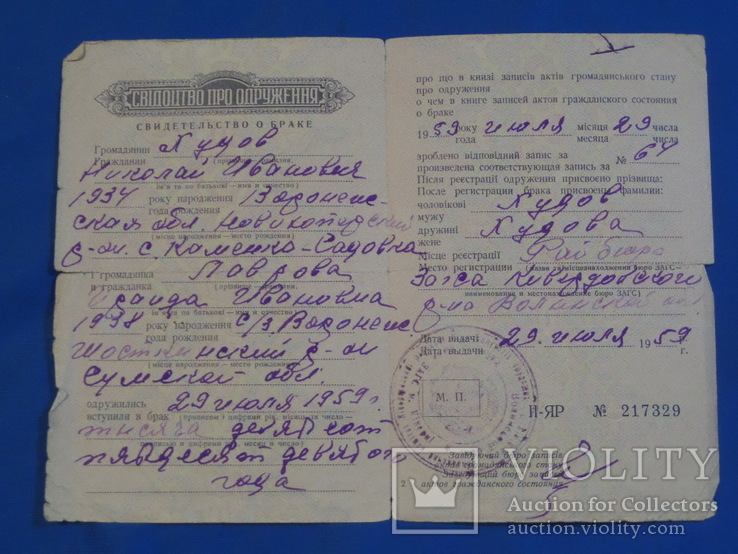 СВІДОЦТВО ПРО ОДРУЖЕННЯ
СВИДЕТЕЛЬСТВО О БРАКЕ
Громадянин Худов
Гражданин (прізвище, фамилия,
Николай Иванович
ім'я та по батькові — имя и отчество)
1937 року народження Воронежс-
года рождения
ская обл. Новохоперский
(місце народження — место рождения)
р-он с. Каменка-Садовка
і Громадянка Лаврова
и гражданка (прізвище, фамилия,
Ираида Ивановна
ім'я та по батькові — имя и отчество)
1938 року народження с/з. Воронеж
года рождения
Шосткинский р-он
(місце народження — место рождения)
Сумской обл.
одружились 29 июля 1959 г.
вступили в брак (прописом і цифрами рік, місяць та число —
тысяча девятсот
прописью и цифрами год, месяц и число)
пятьдесят девятого
года
про що в книзі записів актів громадянського стану
про одруження
о чем в книге записей актов гражданского состояния
о браке
1959 року июля місяця 29 числа
года месяца числа
зроблено відповідний запис за № 64
произведена соответствующая запись за
Після реєстрації одруження присвоєно прізвища:
После регистрации брака присвоены фамилии:
чоловікові Худов
мужу
дружині Худова
жене
Місце реєстрації Рай бюро
Место регистрации (назва та місцезнаходження бюро ЗАГС—
Загса Киверцовского
наименование и местонахождение бюро ЗАГС)
р-на Волынской обл
Дата видачі 29 июля 1959 г.
Дата выдачи
М. П.
II-ЯР № 217329
Завідуючий бюро записів
актів громадянського стану
Заведующий бюро записей
актов гражданского состояния
2
VIOLITY
Auction for Collectors
auction.violity.com